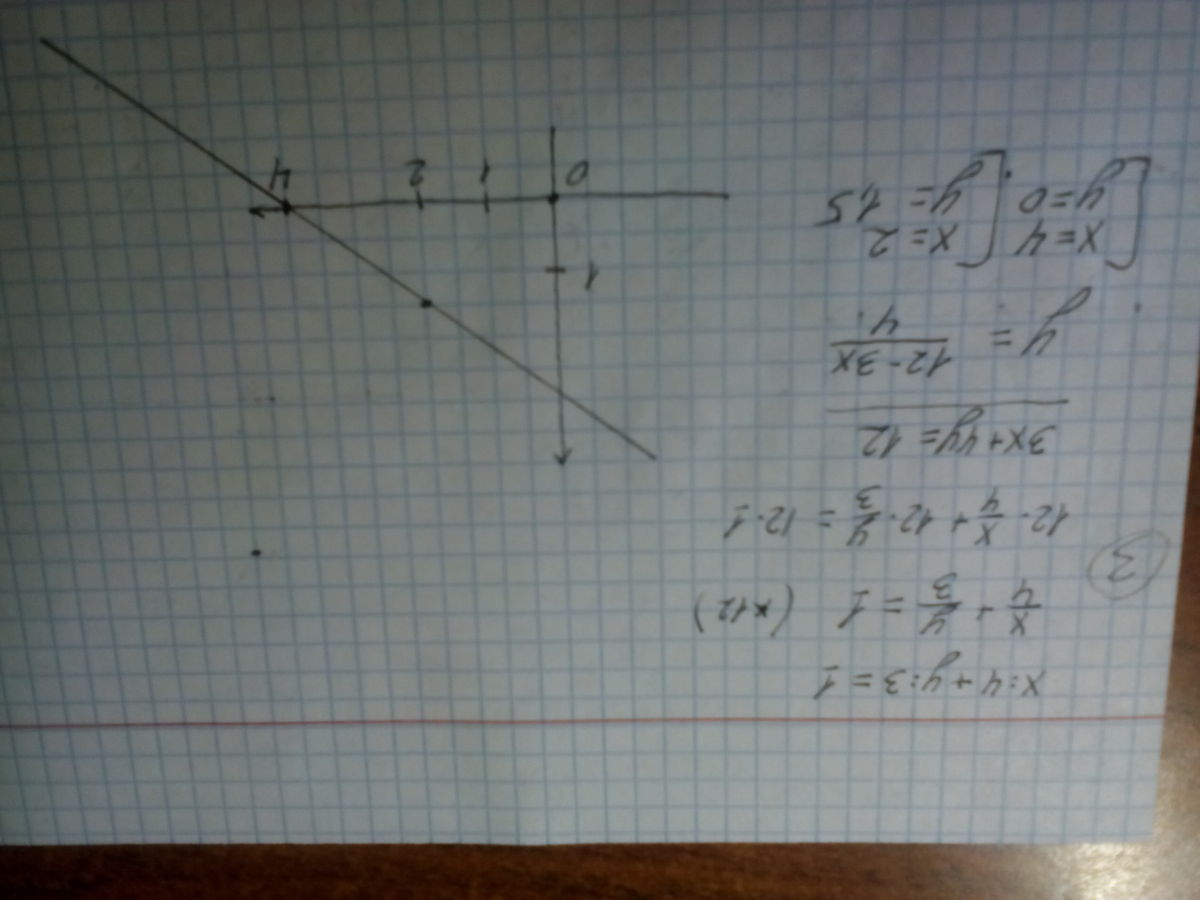 x:4+y:3=1
x/4 + y/3 = 1 (*12)
3
12·x/4 + 12·y/3 = 12·1
3x+4y=12
y = 12-3x/4
[x=4 [x=2
[y=0. [y=1,5
1
0 1 2 4